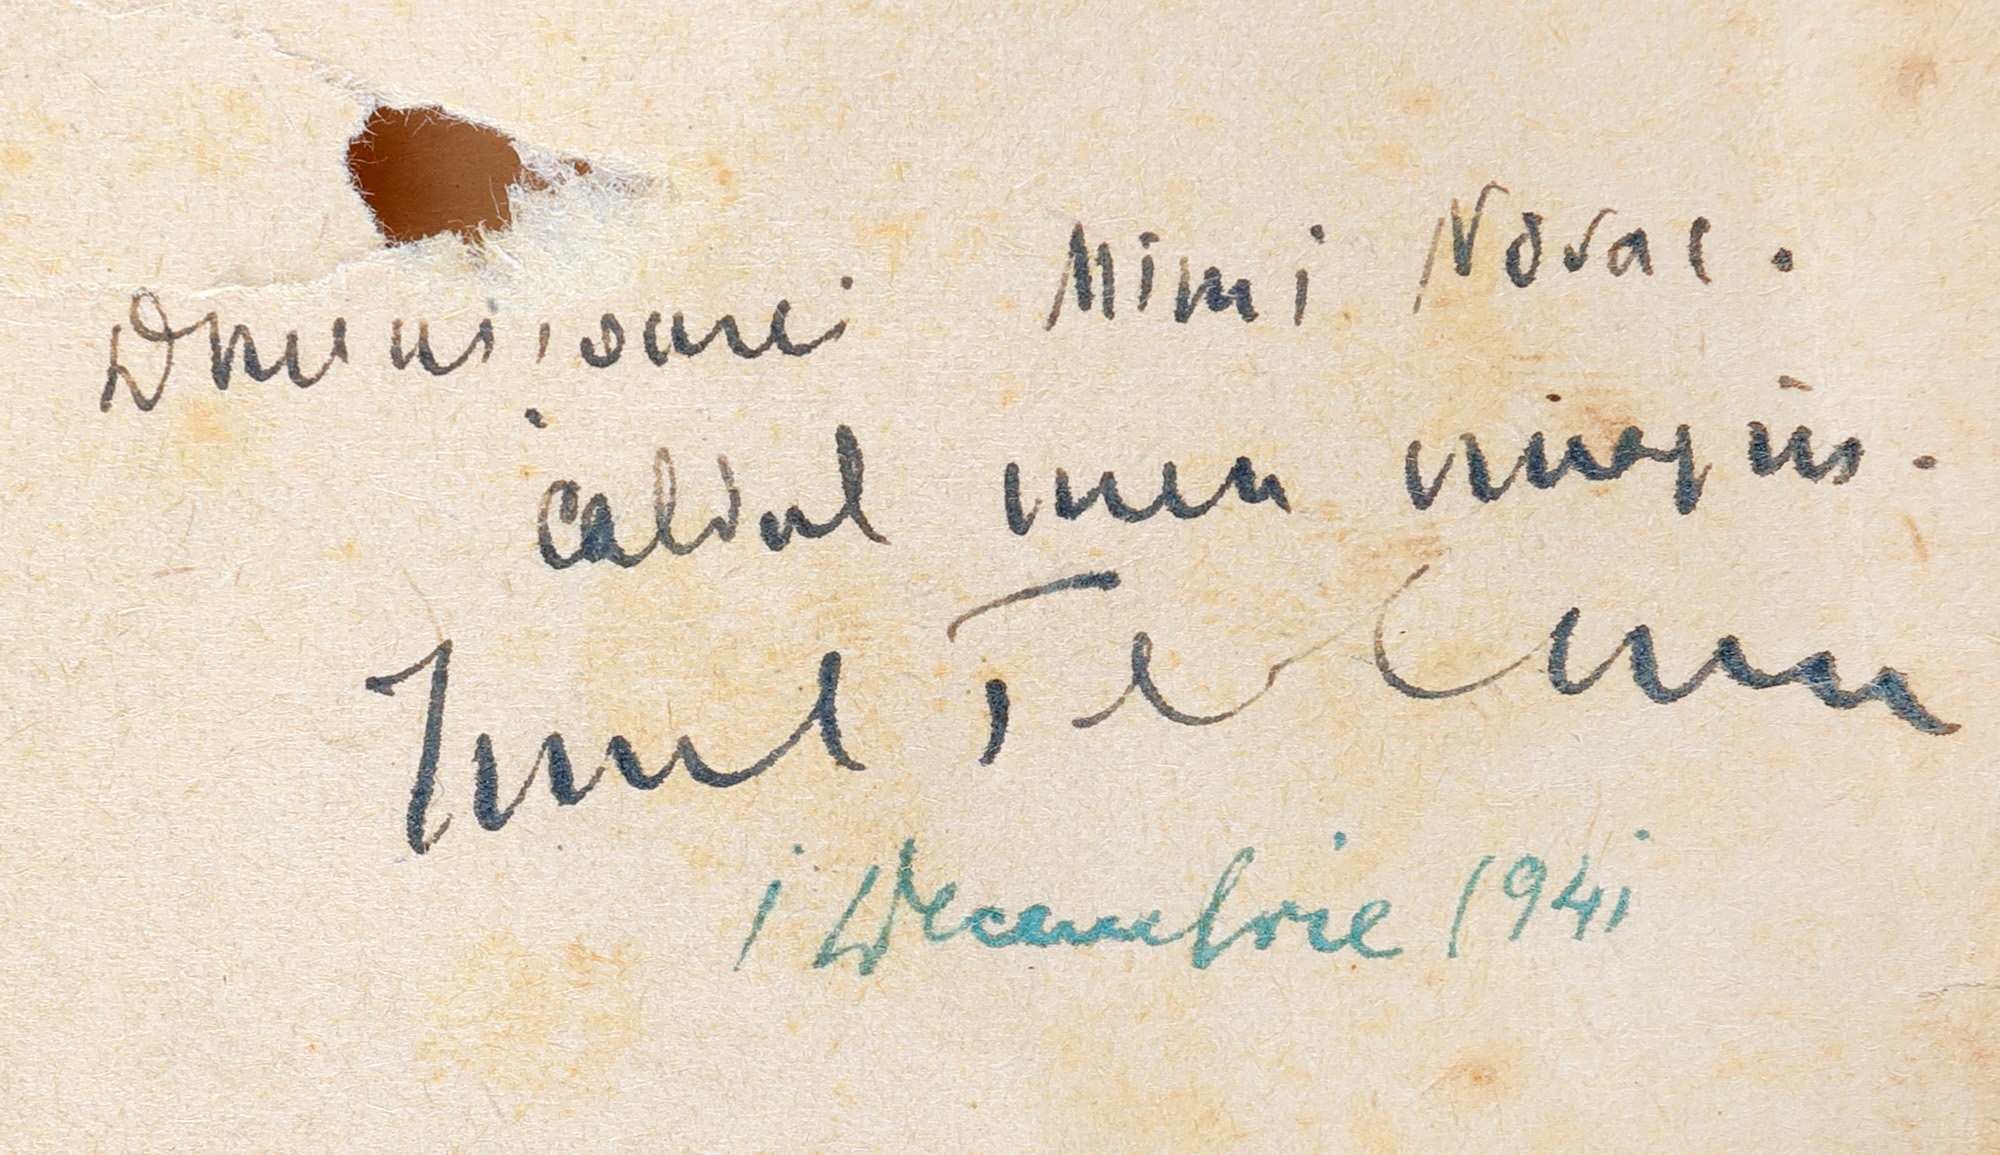 Domnișoarei Mimi Novac.
caldul meu omagiu.
Ionel Teodoreanu
1 Decembrie 1941